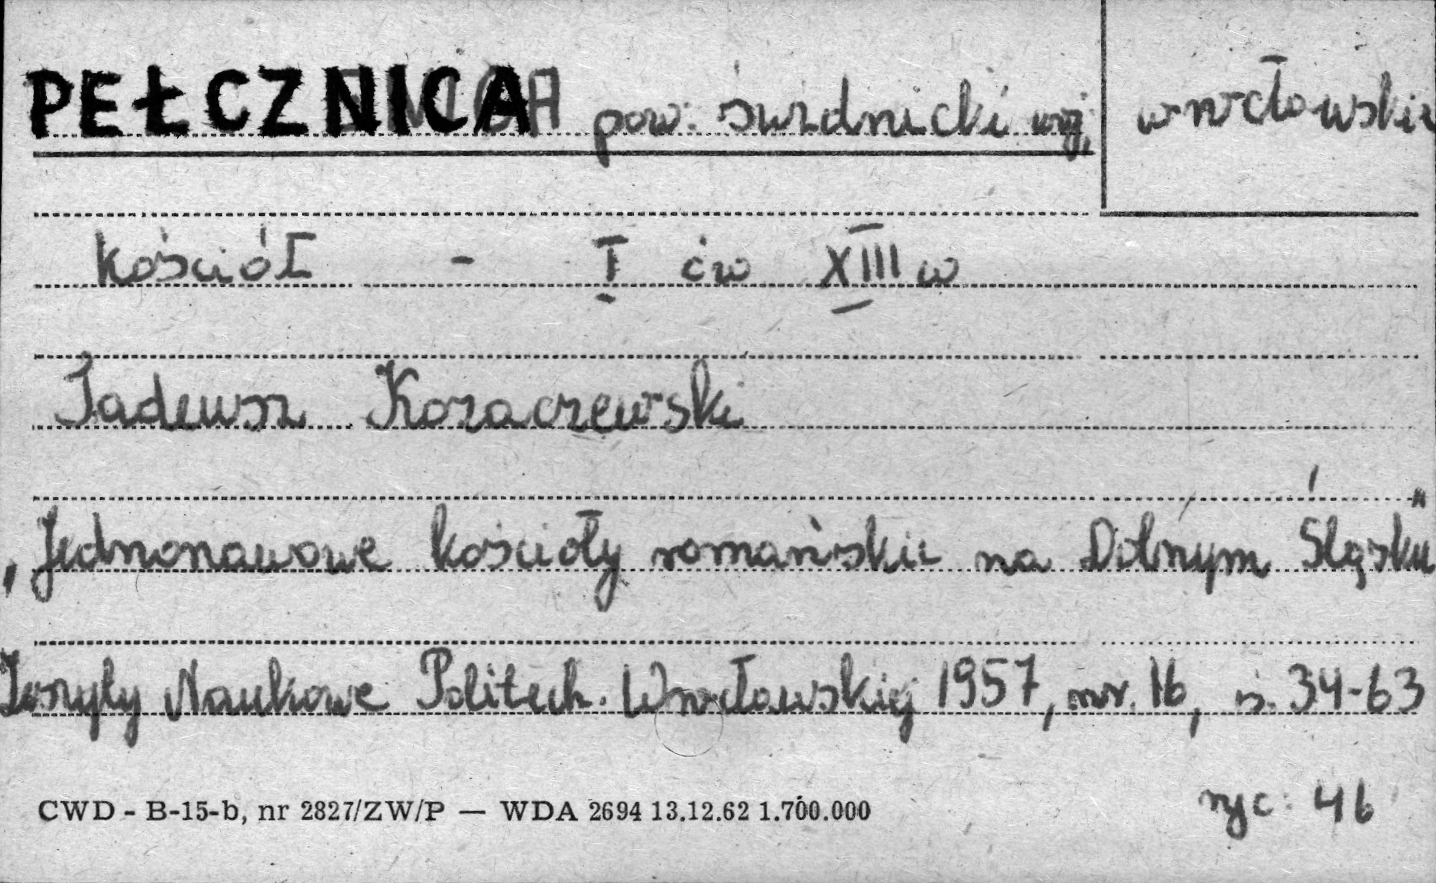 PEŁCZNICA pow. świdnicki woj, wrocławskie
kościół - I ćw XIII w
Tadeusz Kozaczewski
„Jednonawowe kościoły romańskie na Dolnym Śląsku"
Zeszyty Naukowe Politech. Wrocławskiej 1957, nr. 16, s. 34-63
ryc: 46
CWD - B-15-b, nr 2827/ZW/P — WDA 2694 13.12.62 1.700.000